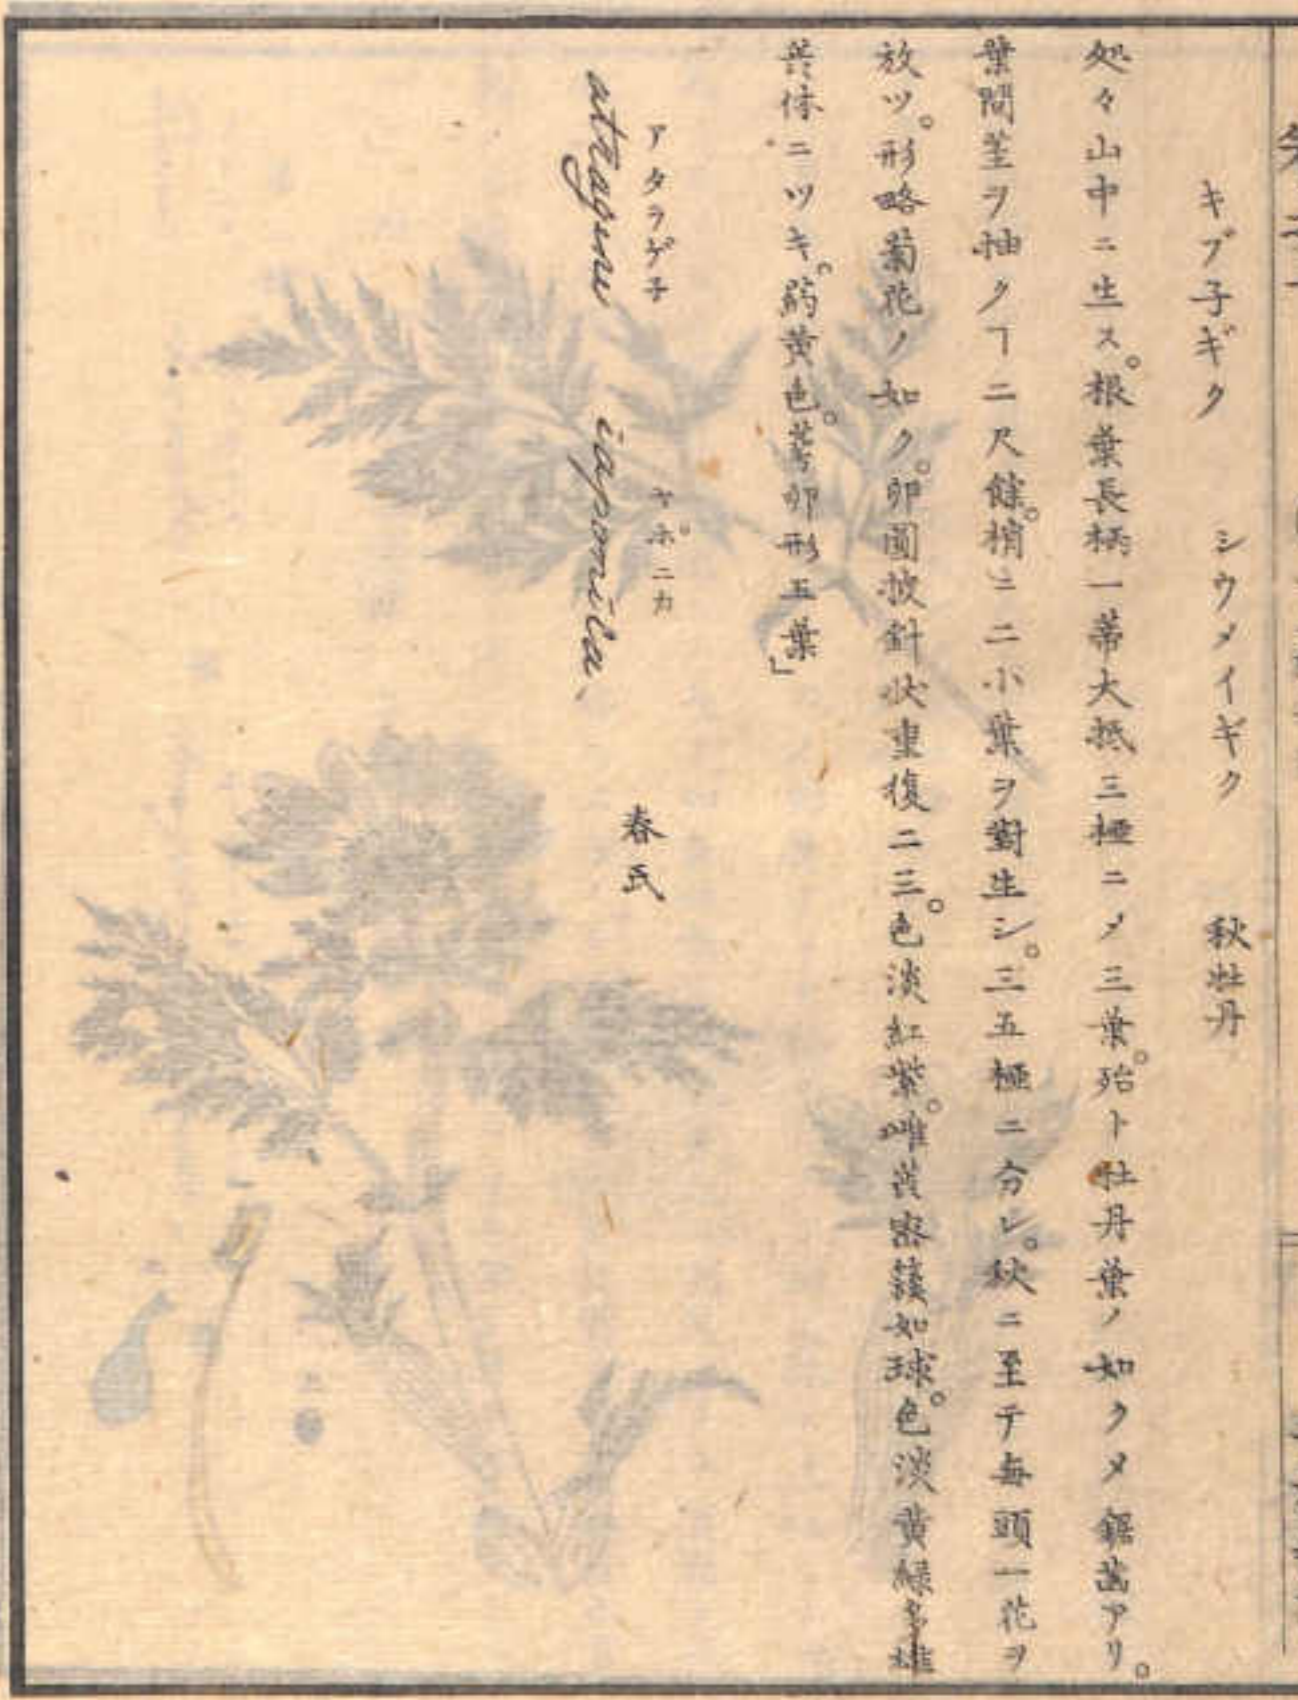 キブ子ギク　シウメイギク　秋牡丹
処々山中ニ生ス。根葉長柄一蒂大抵三椏ニメ三葉。殆ト牡丹葉ノ如クメ鋸齒アリ。
葉間莖ヲ抽クヿ二尺餘。梢ニ二小葉ヲ對生シ。三五椏ニ分レ。秋ニ至テ毎頭一花ヲ
放ツ。形略菊花ノ如ク。卵圓披針状重復二三。色淡紅紫。雌蕊密簇如球。色淡黄緑多雄
蕊体ニツキ。葯黄色。萼卵形五葉」
アタラゲ子　ヤポニカ
atragene iaponica.　春氏